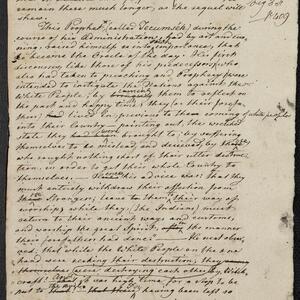 remain there much longer, as the sequel will
shew.
This Prophet (called Tecumseh) during the
course of his Administration, had by art and cun-
ning raised himself so into importance, that he
became the Oracle of the day. His first
discovery like those of his predecessors, who
also had taken to preaching and Prophecy were
intended to irritate the Nations against the
White People, by them to reflect on
the past and happy time, they (or their forefa-
thers) had lived in previous to those coming of white people
into their Country pointing out the
state they had been brought to; by suffering
themselves to be mislead and deceived by those
who sought nothing short of their utter destruc-
tion, in order to get the whole Country to
themselves. His advice was: that they
must entirely withdraw their affection from
these Strangers; leave to them their way of
worship while they, the Indians must
return to their ancient ways and customs,
and worship the great Spirit, after the manner
their forefathers had done. He next shew-
ed, that while the White People on the one
hand were seeking their destruction, they
themselves were destroying each other by Witch-
craft. That it was high time, for a stop to be
put to having been left us